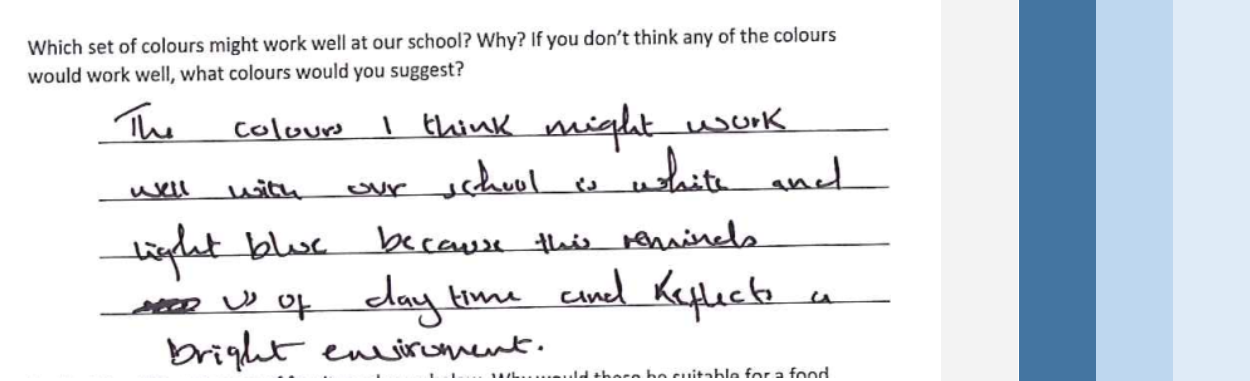 Which set of colours might work well at our school? Why? If you don't think any of the colours
would work well, what colours would you suggest?
The colours I think might work
well with our school is white and
light blue because this reminds
us of day time and Reflects a
bright enviroment.
would these be suitable for a food